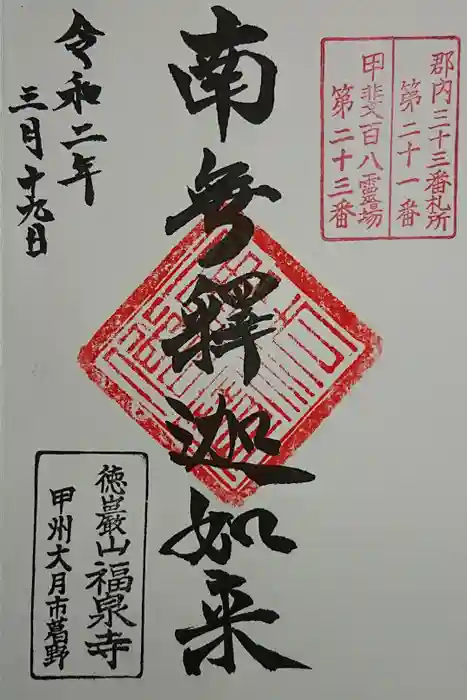 郡内三十三番札所
第二十一番
甲斐百八靈場
第二十三番
南無釋迦如来
令和二年
三月十九日
徳巖山福泉寺
甲州大月市葛野